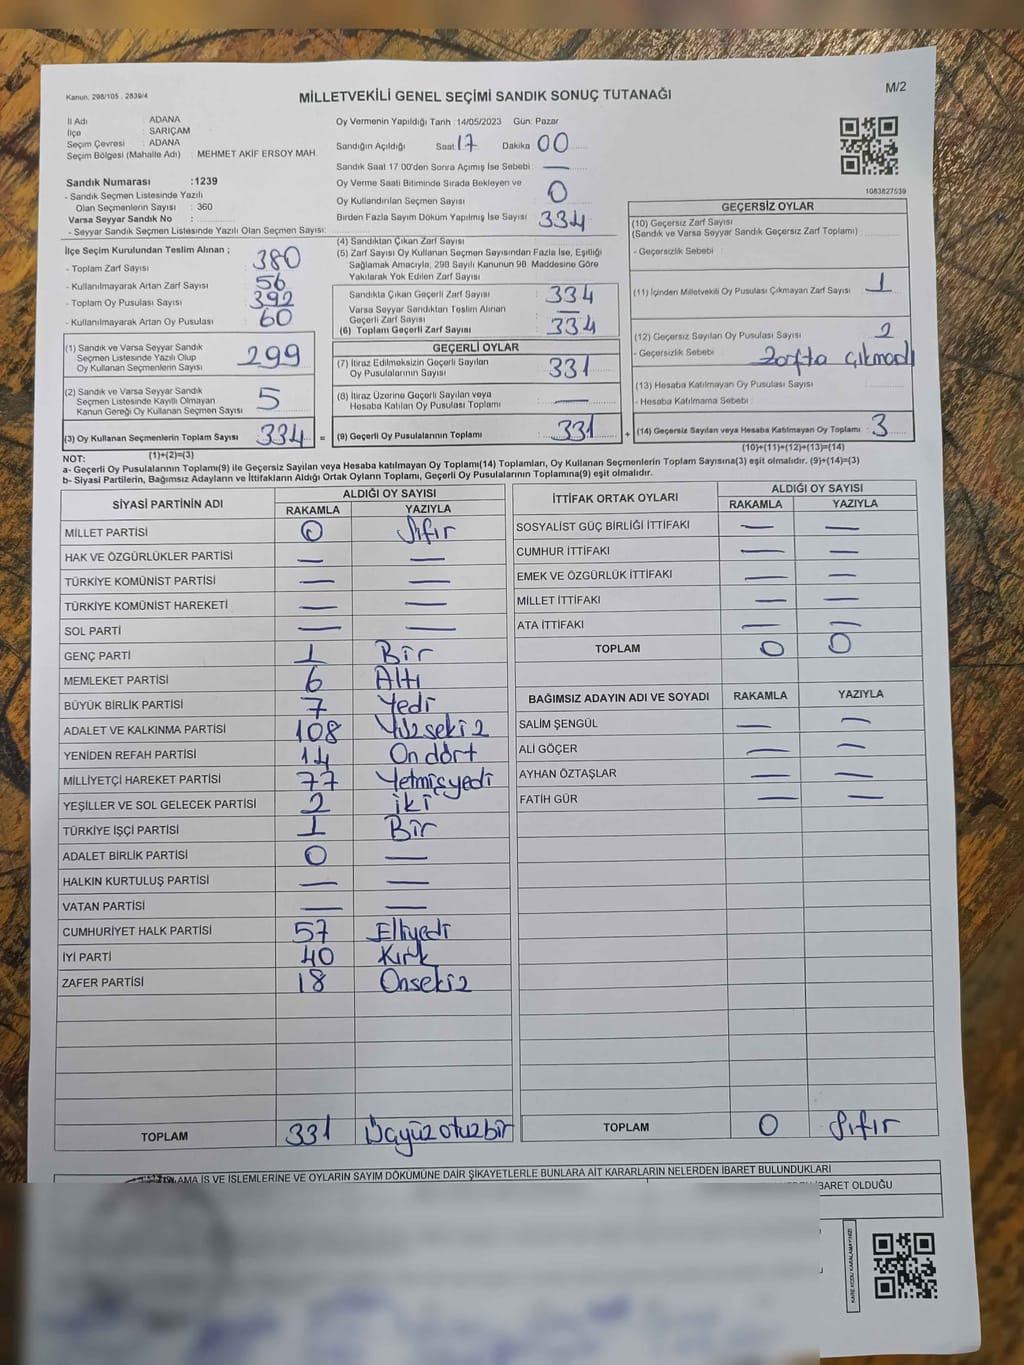 Kanun, 298/105 , 2839/4
M/2
MİLLETVEKİLİ GENEL SEÇİMİ SANDIK SONUÇ TUTANAĞI
İl Adı : ADANA
İlçe : SARIÇAM
Seçim Çevresi : ADANA
Seçim Bölgesi (Mahalle Adı) : MEHMET AKİF ERSOY MAH.
Sandık Numarası :1239
- Sandık Seçmen Listesinde Yazılı
Olan Seçmenlerin Sayısı : 360
Varsa Seyyar Sandık No :
- Seyyar Sandık Seçmen Listesinde Yazılı Olan Seçmen Sayısı:
Oy Vermenin Yapıldığı Tarih :14/05/2023 Gün: Pazar
Sandığın Açıldığı Saat 17 Dakika 00
Sandık Saat 17:00'den Sonra Açılmış İse Sebebi : —
Oy Verme Saati Bitiminde Sırada Bekleyen ve
Oy Kullandırılan Seçmen Sayısı : 0
Birden Fazla Sayım Döküm Yapılmış İse Sayısı : 334
1083827539
İlçe Seçim Kurulundan Teslim Alınan ;
- Toplam Zarf Sayısı : 380
- Kullanılmayarak Artan Zarf Sayısı : 56
- Toplam Oy Pusulası Sayısı : 392
- Kullanılmayarak Artan Oy Pusulası : 60
(1) Sandık ve Varsa Seyyar Sandık
Seçmen Listesinde Yazılı Olup
Oy Kullanan Seçmenlerin Sayısı : 299
(2) Sandık ve Varsa Seyyar Sandık
Seçmen Listesinde Kayıtlı Olmayan
Kanun Gereği Oy Kullanan Seçmen Sayısı : 5
(3) Oy Kullanan Seçmenlerin Toplam Sayısı : 334 =
(1)+(2)=(3)
(4) Sandıktan Çıkan Zarf Sayısı :
(5) Zarf Sayısı Oy Kullanan Seçmen Sayısından Fazla İse, Eşitliği
Sağlamak Amacıyla, 298 Sayılı Kanunun 98. Maddesine Göre
Yakılarak Yok Edilen Zarf Sayısı :
Sandıkta Çıkan Geçerli Zarf Sayısı : 334
Varsa Seyyar Sandıktan Teslim Alınan
Geçerli Zarf Sayısı : —
(6) Toplam Geçerli Zarf Sayısı : 334
GEÇERLİ OYLAR
(7) İtiraz Edilmeksizin Geçerli Sayılan
Oy Pusulalarının Sayısı : 331
(8) İtiraz Üzerine Geçerli Sayılan veya
Hesaba Katılan Oy Pusulası Toplamı : —
(9) Geçerli Oy Pusulalarının Toplamı : 331 +
GEÇERSİZ OYLAR
(10) Geçersiz Zarf Sayısı
(Sandık ve Varsa Seyyar Sandık Geçersiz Zarf Toplamı) :
- Geçersizlik Sebebi :
(11) İçinden Milletvekili Oy Pusulası Çıkmayan Zarf Sayısı : 1
(12) Geçersiz Sayılan Oy Pusulası Sayısı : 2
- Geçersizlik Sebebi : Zarfta çıkmadı
(13) Hesaba Katılmayan Oy Pusulası Sayısı :
- Hesaba Katılmama Sebebi :
(14) Geçersiz Sayılan veya Hesaba Katılmayan Oy Toplamı : 3
(10)+(11)+(12)+(13)=(14)
NOT:
a- Geçerli Oy Pusulalarının Toplamı(9) ile Geçersiz Sayılan veya Hesaba katılmayan Oy Toplamı(14) Toplamları, Oy Kullanan Seçmenlerin Toplam Sayısına(3) eşit olmalıdır. (9)+(14)=(3)
b- Siyasi Partilerin, Bağımsız Adayların ve İttifakların Aldığı Ortak Oyların Toplamı, Geçerli Oy Pusulalarının Toplamına(9) eşit olmalıdır.
SİYASİ PARTİNİN ADI ALDIĞI OY SAYISI
RAKAMLA YAZIYLA
MİLLET PARTİSİ 0 Sıfır
HAK VE ÖZGÜRLÜKLER PARTİSİ — —
TÜRKİYE KOMÜNİST PARTİSİ — —
TÜRKİYE KOMÜNİST HAREKETİ — —
SOL PARTİ — —
GENÇ PARTİ 1 Bir
MEMLEKET PARTİSİ 6 Altı
BÜYÜK BİRLİK PARTİSİ 7 Yedi
ADALET VE KALKINMA PARTİSİ 108 Yüzsekiz
YENİDEN REFAH PARTİSİ 14 On dört
MİLLİYETÇİ HAREKET PARTİSİ 77 Yetmişyedi
YEŞİLLER VE SOL GELECEK PARTİSİ 2 iki
TÜRKİYE İŞÇİ PARTİSİ 1 Bir
ADALET BİRLİK PARTİSİ 0 —
HALKIN KURTULUŞ PARTİSİ — —
VATAN PARTİSİ — —
CUMHURİYET HALK PARTİSİ 57 Elliyedi
İYİ PARTİ 40 Kırk
ZAFER PARTİSİ 18 Onsekiz
TOPLAM 331 Üçyüzotuzbir
İTTİFAK ORTAK OYLARI ALDIĞI OY SAYISI
RAKAMLA YAZIYLA
SOSYALİST GÜÇ BİRLİĞİ İTTİFAKI — —
CUMHUR İTTİFAKI — —
EMEK VE ÖZGÜRLÜK İTTİFAKI — —
MİLLET İTTİFAKI — —
ATA İTTİFAKI — —
TOPLAM 0 0
BAĞIMSIZ ADAYIN ADI VE SOYADI RAKAMLA YAZIYLA
SALİM ŞENGÜL — —
ALİ GÖÇER — —
AYHAN ÖZTAŞLAR — —
FATİH GÜR — —
TOPLAM 0 Sıfır
İŞ VE İŞLEMLERİNE VE OYLARIN SAYIM DÖKÜMÜNE DAİR ŞİKAYETLERLE BUNLARA AİT KARARLARIN NELERDEN İBARET BULUNDUKLARI
İBARET OLDUĞU
KARE KODU KARALAMAYINIZ!